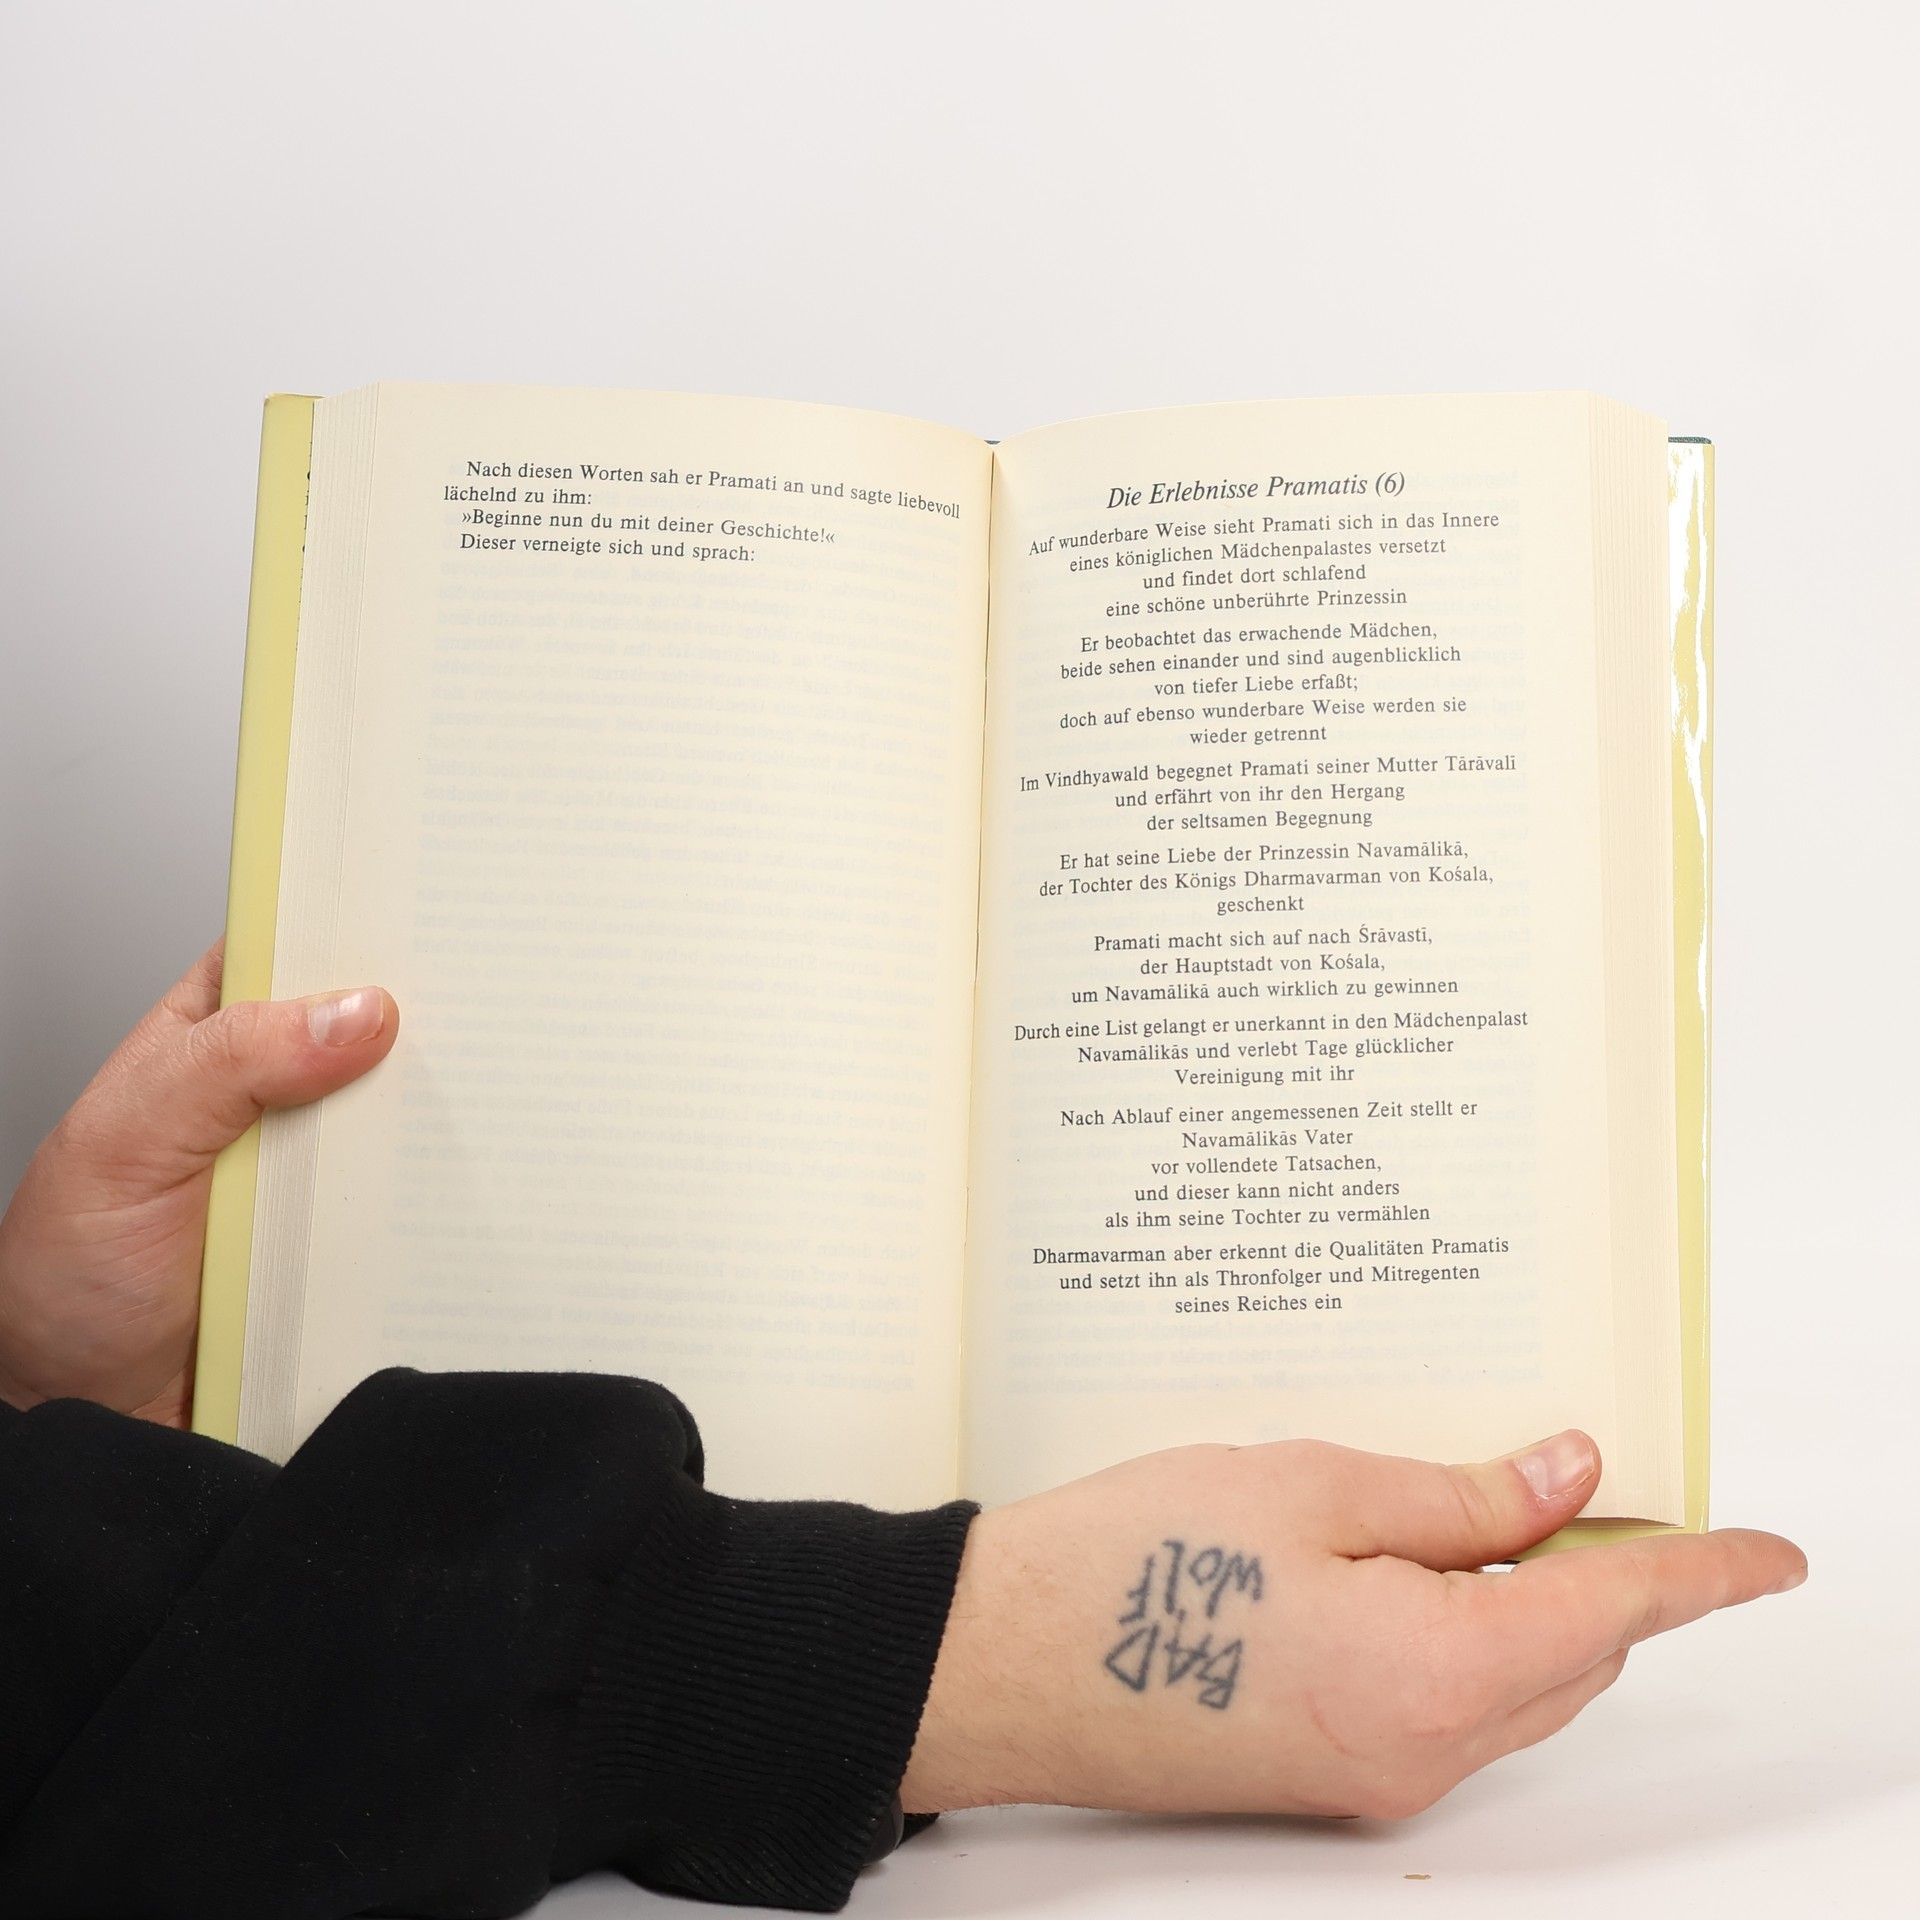 Nach diesen Worten sah er Pramati an und sagte liebevoll
lächelnd zu ihm:
»Beginne nun du mit deiner Geschichte!«
Dieser verneigte sich und sprach:
Die Erlebnisse Pramatis (6)
Auf wunderbare Weise sieht Pramati sich in das Innere
eines königlichen Mädchenpalastes versetzt
und findet dort schlafend
eine schöne unberührte Prinzessin
Er beobachtet das erwachende Mädchen,
beide sehen einander und sind augenblicklich
von tiefer Liebe erfaßt;
doch auf ebenso wunderbare Weise werden sie
wieder getrennt
Im Vindhyawald begegnet Pramati seiner Mutter Tārāvalī
und erfährt von ihr den Hergang
der seltsamen Begegnung
Er hat seine Liebe der Prinzessin Navamālikā,
der Tochter des Königs Dharmavarman von Kośala,
geschenkt
Pramati macht sich auf nach Śrāvastī,
der Hauptstadt von Kośala,
um Navamālikā auch wirklich zu gewinnen
Durch eine List gelangt er unerkannt in den Mädchenpalast
Navamālikās und verlebt Tage glücklicher
Vereinigung mit ihr
Nach Ablauf einer angemessenen Zeit stellt er
Navamālikās Vater
vor vollendete Tatsachen,
und dieser kann nicht anders
als ihm seine Tochter zu vermählen
Dharmavarman aber erkennt die Qualitäten Pramatis
und setzt ihn als Thronfolger und Mitregenten
seines Reiches ein
BAD
WOLF